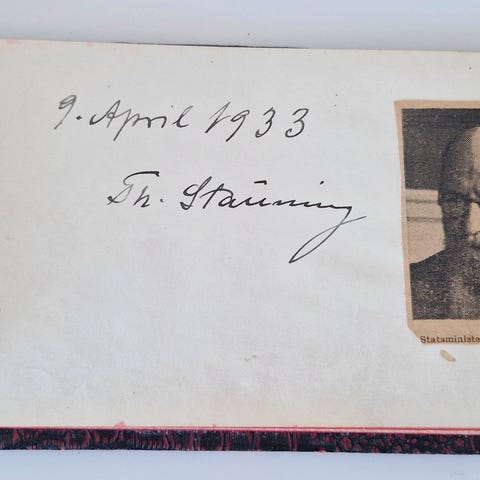 9. April 1933
Th. Stauning
Statsministe